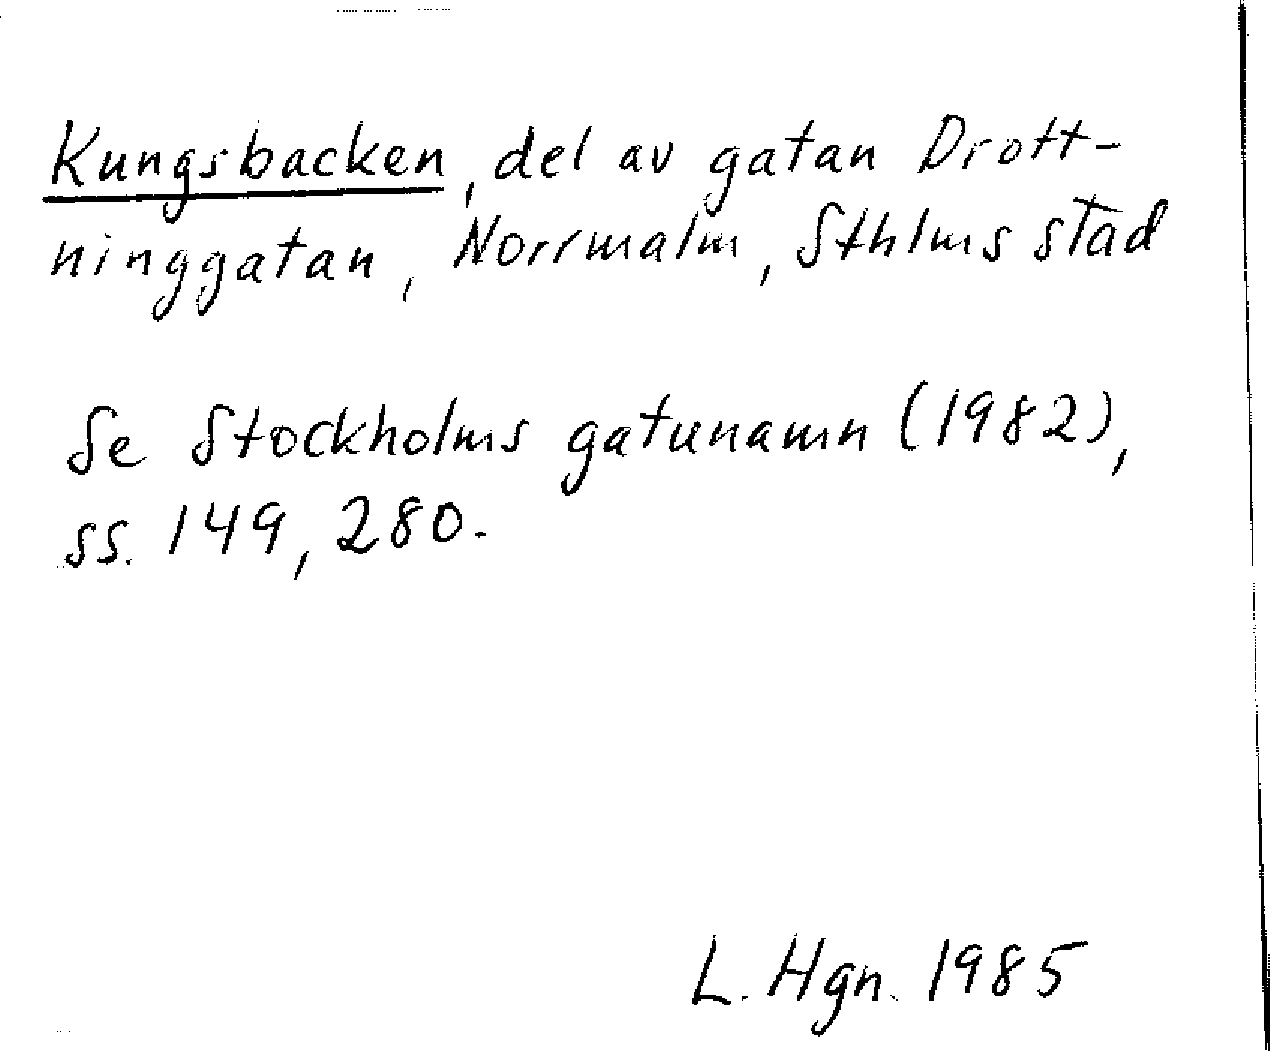 Kungsbacken, del av gatan Drott-
ninggatan, Norrmalm, Sthlms stad
Se Stockholms gatunamn (1982),
ss. 149, 280.
L. Hgn. 1985